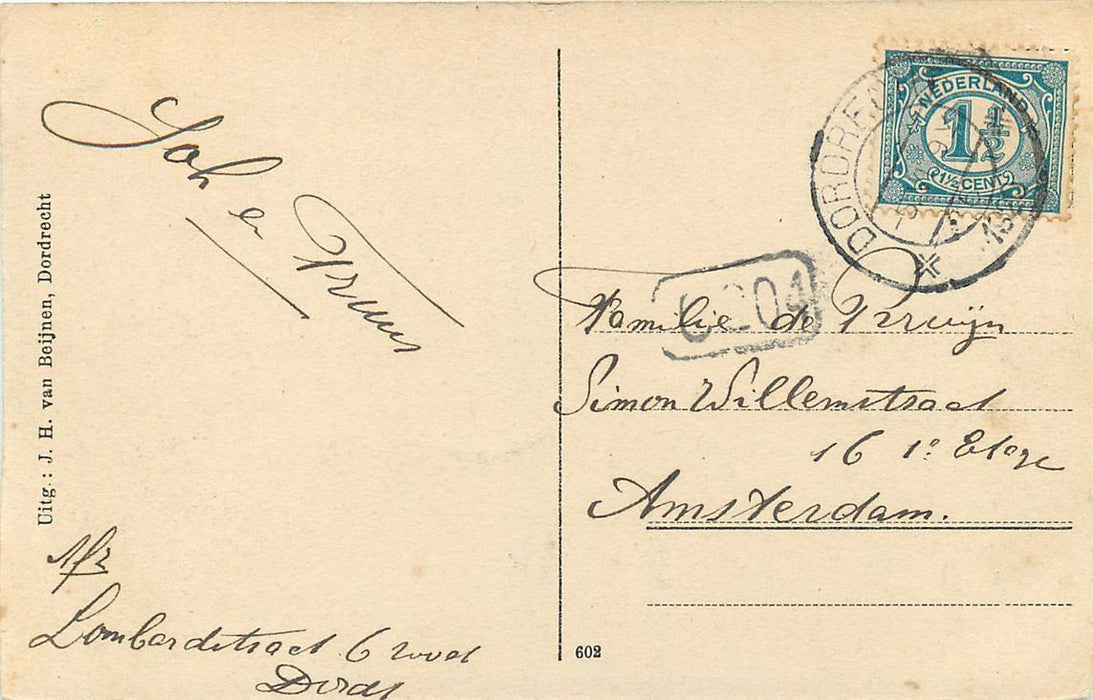 Joh en Truus
Uitg.: J. H. van Beijnen, Dordrecht
Afz
Lombardstraat 6 rood
Dordt
602
NEDERLAND
1½
1½ CENT
DORDRECHT
Familie de Bruijn
Simon Willemstraat
16 1e Etage
Amsterdam.